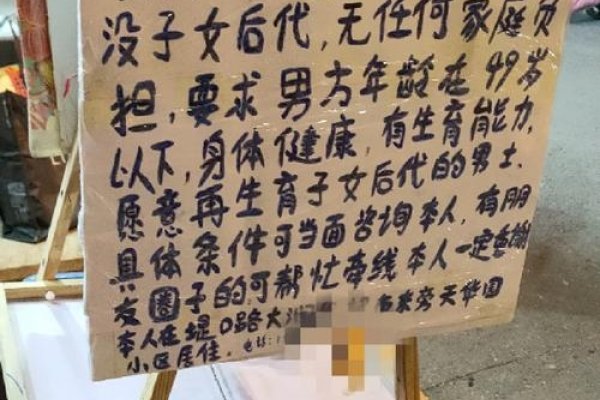 没子女后代,无任何家庭负
担,要求男方年龄在49岁
以下,身体健康,有生育能力,
愿意再生育子女后代的男士、
具体条件可当面咨询本人,有朋
友圈子的可帮忙牵线本人一定重谢
本人在堤口路大 旁天华园
小区居住。电话: